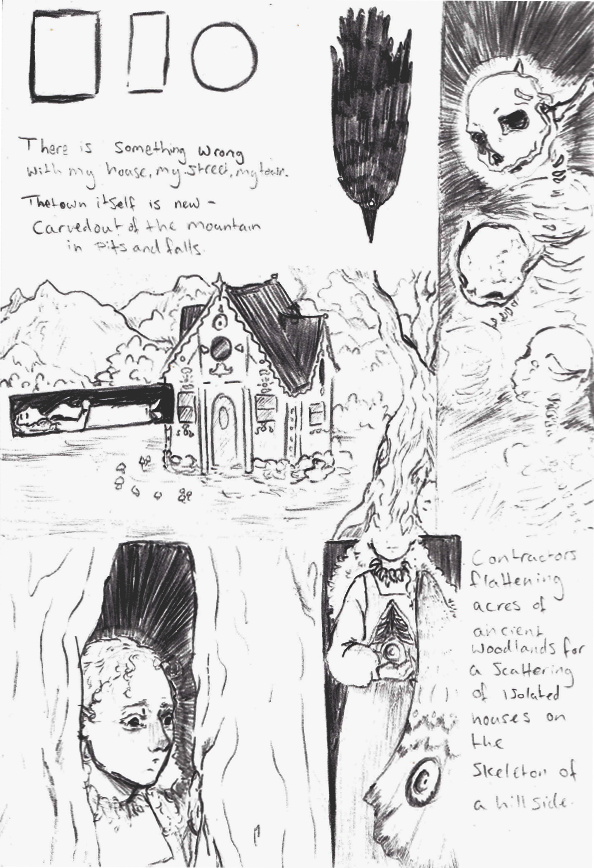 There is something wrong
with my house, my street, my town.
The town itself is new -
Carved out of the mountain
in pits and falls.
Contractors
flattening
acres of
ancient
woodlands for
a scattering
of isolated
houses on
the
Skeleton of
a hill side.